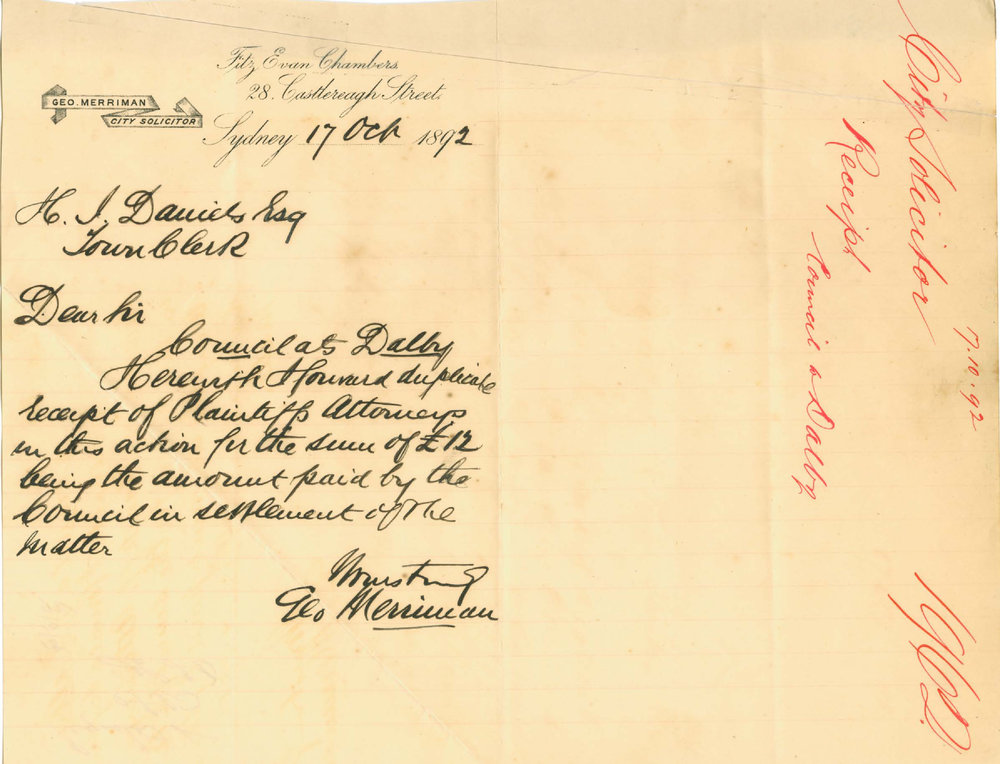 Fitz Evan Chambers
28. Castlereagh Street.
GEO. MERRIMAN
CITY SOLICITOR
Sydney 17 Oct 1892
H. J. Daniels Esq
Town Clerk
Dear Sir
Council ats Dalby
Herewith I forward duplicate
receipt of Plaintiffs Attorneys
in this action for the sum of £12
being the amount paid by the
Council in settlement of the
matter
Yours truly
Geo Merriman
City Solicitor
7.10.92
Receipt
Council a Dalby